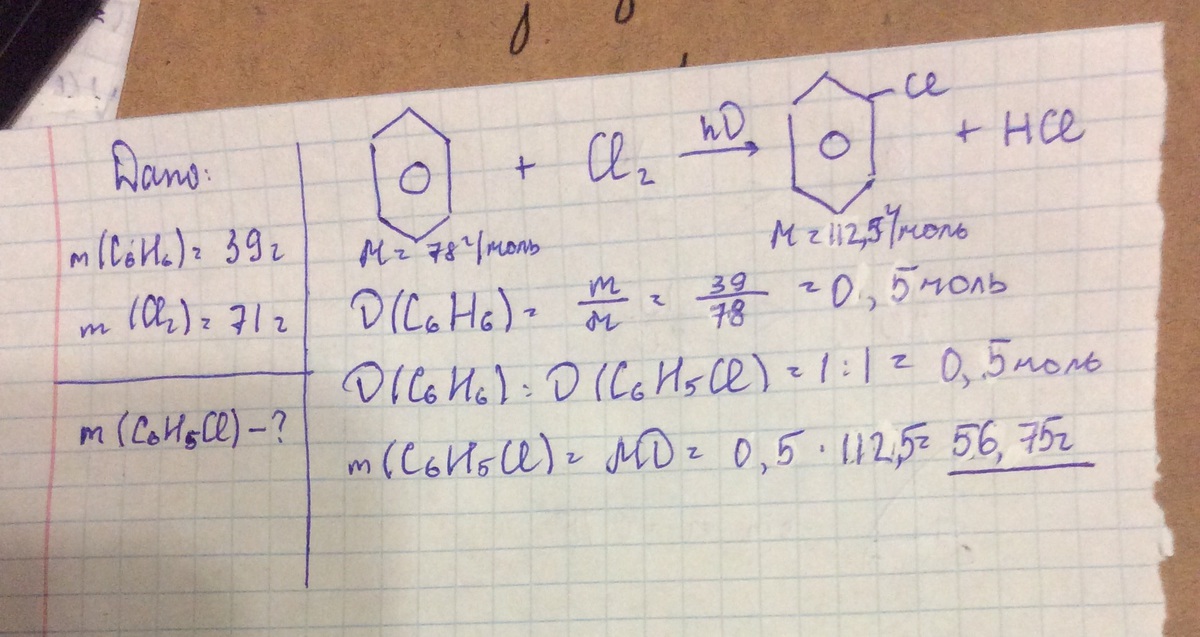 Дано:
m(C₆H₆) = 39г
m(Cl₂) = 71г
m(C₆H₅Cl) – ?
+ Cl₂ hν → Cl + HCl
M = 78г/моль
M = 112,5г/моль
ν(C₆H₆) = m/M = 39/78 = 0,5моль
ν(C₆H₆) : ν(C₆H₅Cl) = 1:1 = 0,5моль
m(C₆H₅Cl) = Mν = 0,5 · 112,5 = 56,75г